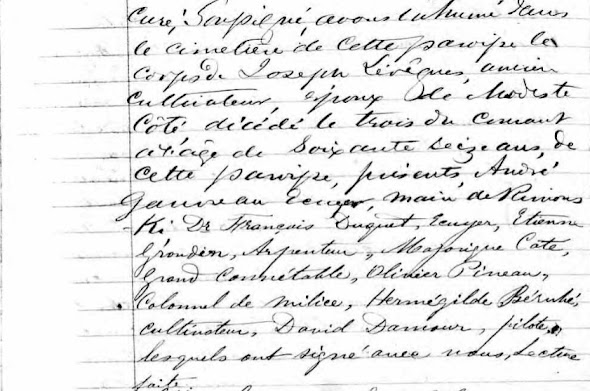 Curé, Soussigné, avons inhumé dans
le cimetière de Cette paroisse le
Corps de Joseph Lévêques, ancien
Cultivateur, époux de Modeste
Côté décédé le trois du Courant
à l'âge de Soixante Seize ans, de
Cette paroisse, présents André
Gauvreau Ecuyer, maire de Rimous
Ki Dr François Duguet, Ecuyer, Etienne
Grondin, Arpenteur, Majorique Coté,
Grand Connétable, Olivier Pineau,
Colonnel de milice, Hermégilde Bérubé,
Cultivateur, David Damour, pilote,
lesquels ont signé avec nous, Lecture
faite